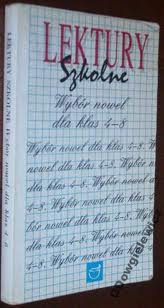 LEKTURY
Szkolne
Wybór nowel
dla klas 4-8
Wybór nowel dla klas 4-8.
Wybór nowel dla klas
4-8. Wybór nowel dla
klas 4-8. Wybór nowel
dla klas 4-8. Wybór
nowel dla klas 4-8.
LEKTURY SZKOLNE Wybór nowel dla klas 4-8